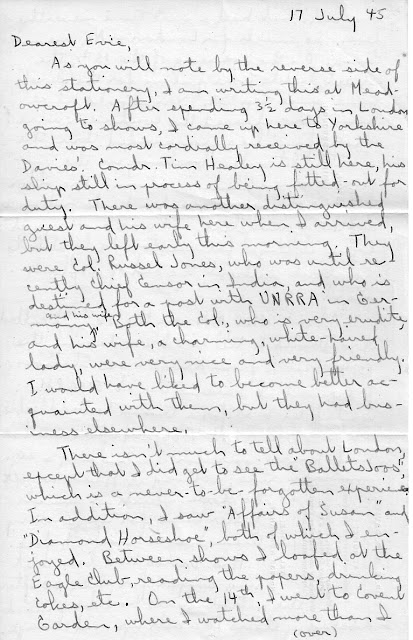 17 July 45
Dearest Evie,
As you will note by the reverse side of
this stationery, I am writing this at Mead-
owcroft. After spending 3½ days in London
going to shows, I came up here to Yorkshire
and was most cordially received by the
Davies'. Comdr. Tim Healey is still here, his
ship still in process of being fitted out for
duty. There was another distinguished
guest and his wife here when I arrived,
but they left early this morning. They
were Col. Russel Jones, who was until re-
cently Chief Censor in India, and who is
destined for a post with UNRRA in Ger-
and his wife
many. Both the Col., who is very erudite,
and his wife, a charming, white-haired
lady, were very nice and very friendly.
I would have liked to become better ac-
quainted with them, but they had bus-
iness elsewhere.
There isn't much to tell about London,
except that I did get to see the "Ballets Joos",
which is a never-to-be-forgotten experience.
In addition, I saw "Affairs of Susan" and
"Diamond Horseshoe", both of which I en-
joyed. Between shows I loafed at the
Eagle Club, reading the papers, drinking
cokes, etc. On the 14th, I went to Covent
Garden, where I watched more than I
(over)